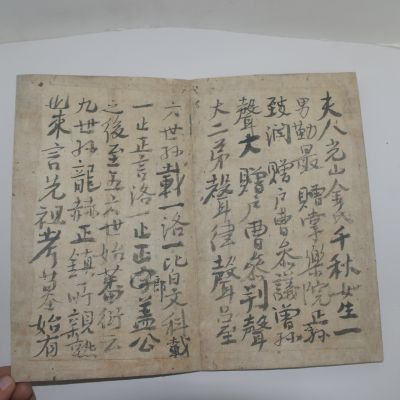 夫人光山金氏千秋女生一
男勤最 贈掌樂院正孫
致润 贈戶曹參議曾孫
聲大 贈戶曹參判聲
大二弟聲律聲呂至
六世孫載一洛一比皆文科載
一止正言洛一止正郎盖公
之後至五六世始蕃衍云
九世孫龍赫正鎮所親熟
也來言先祖考墓始有